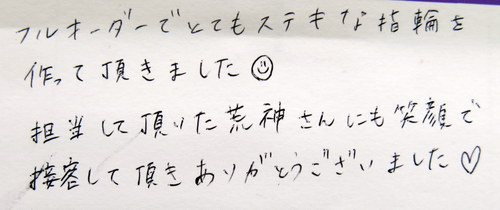 フルオーダーでとてもステキな指輪を
作って頂きました☺
担当して頂いた荒神さんにも笑顔で
接客して頂きありがとうございました♡